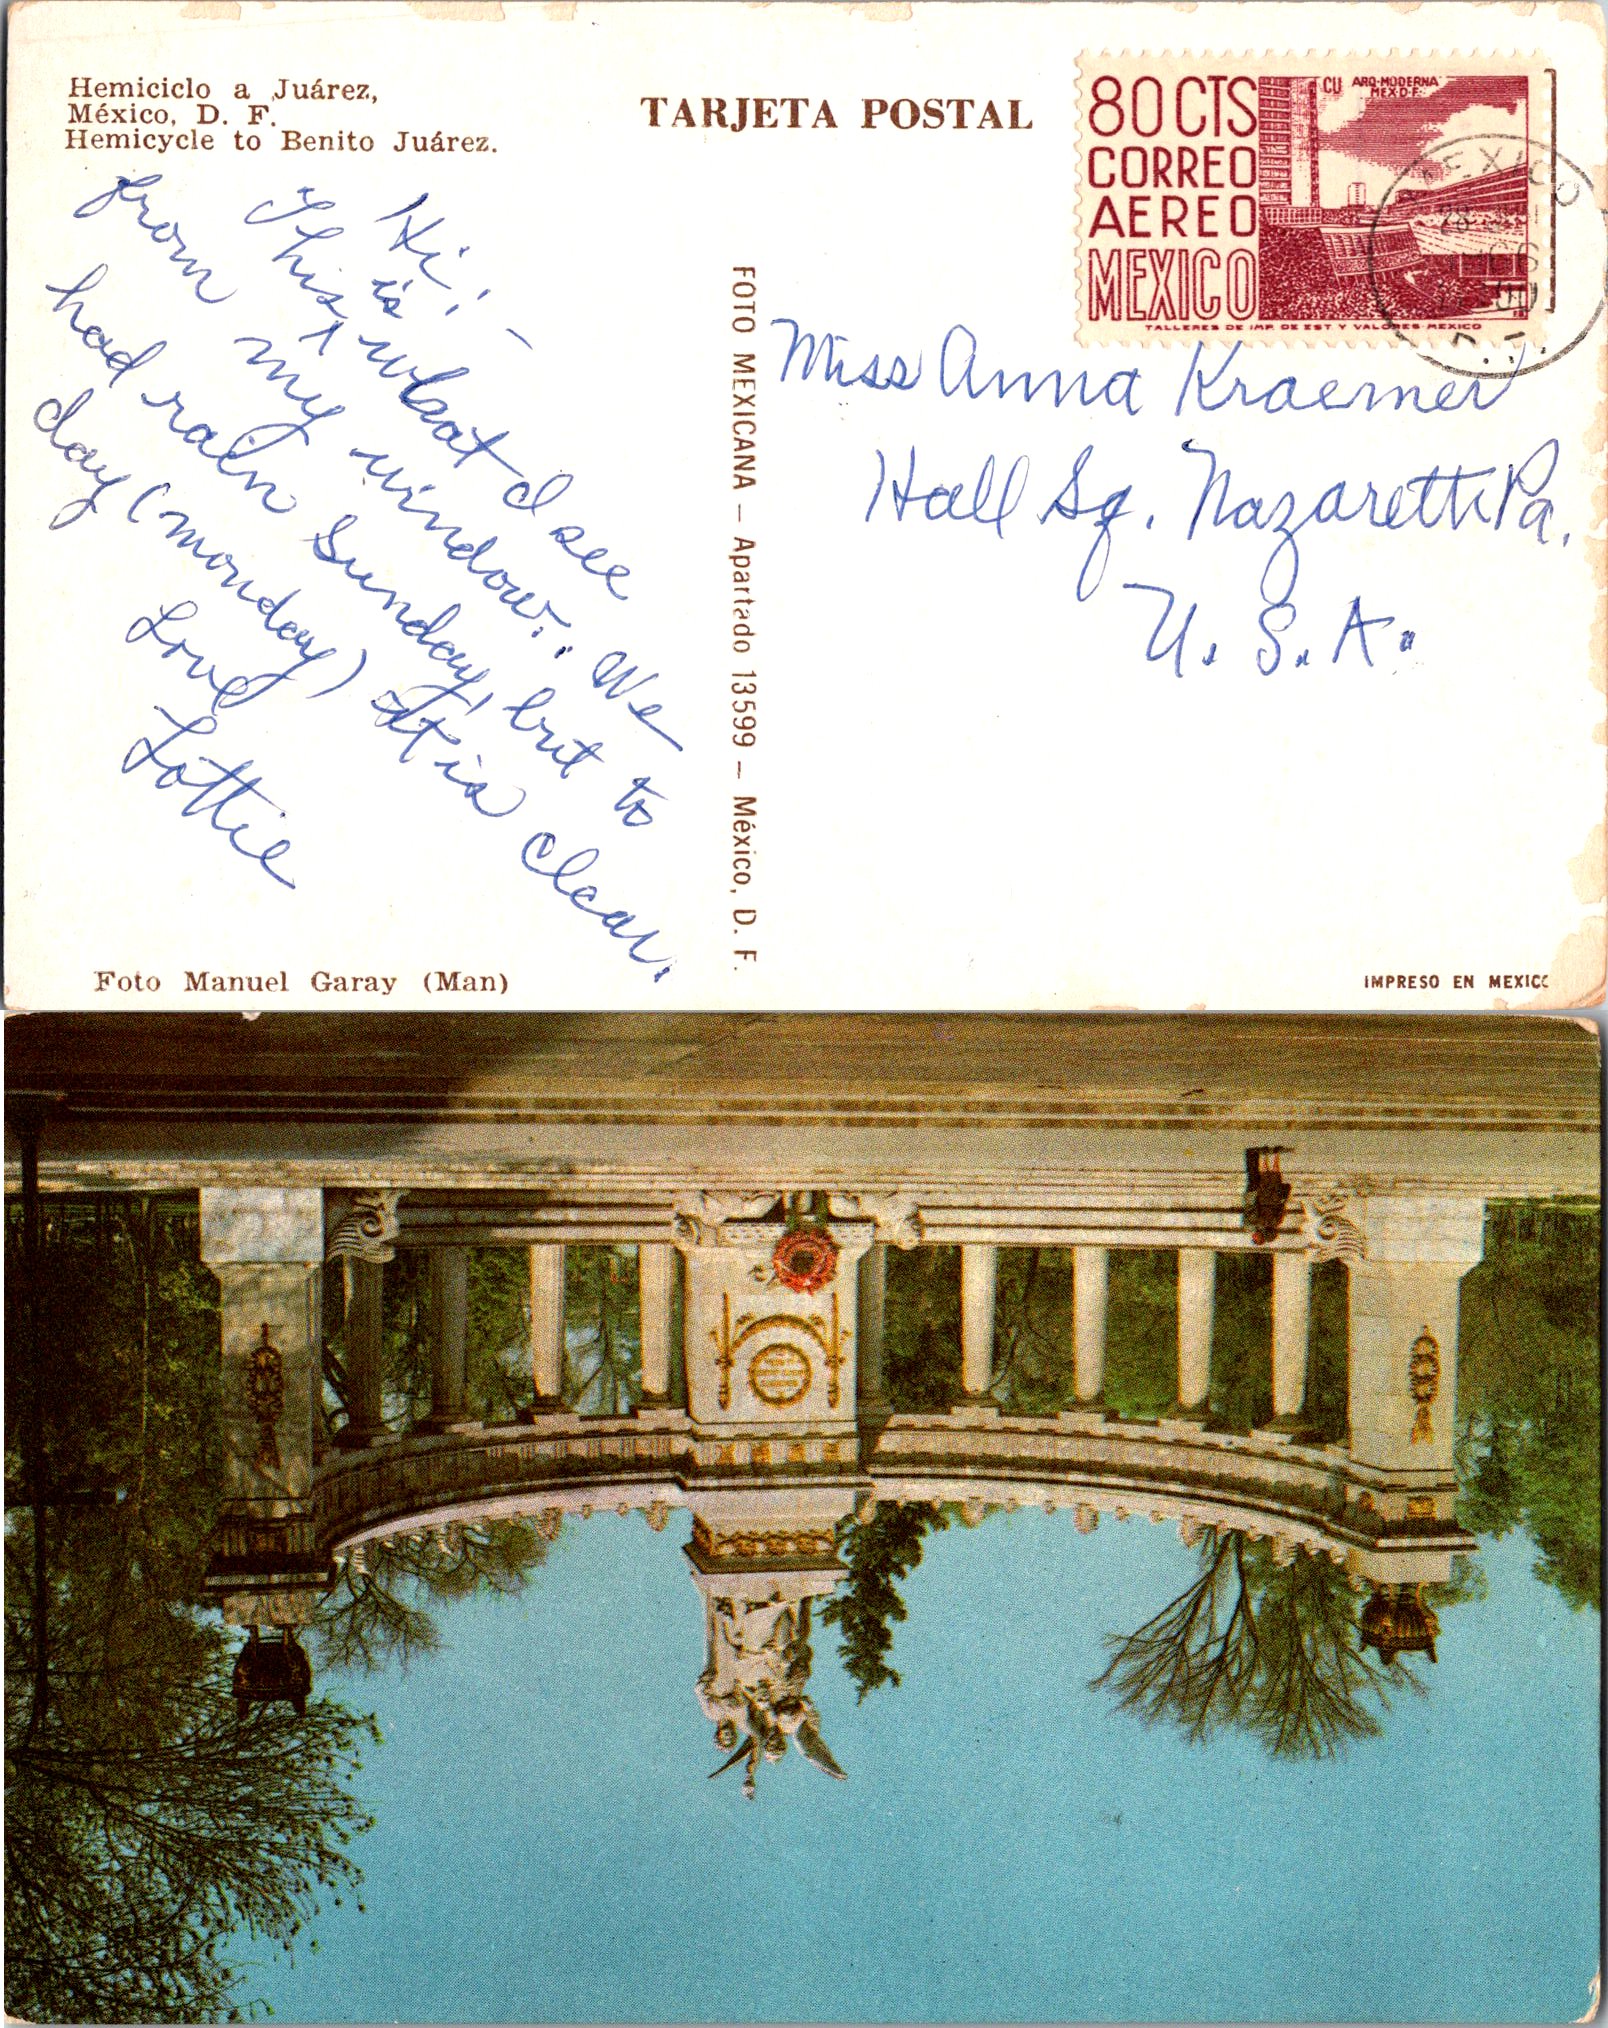 Hemiciclo a Juárez,
México, D. F.
Hemicycle to Benito Juárez.
TARJETA POSTAL
80 CTS
CORREO
AEREO
MEXICO
CU ARQ-MODERNA
MEX-D-F.
TALLERES DE IMP. DE EST. Y VALORES-MEXICO
MEXICO
D. F.
Hi! –
This is what I see
from my window. We
had rain Sunday, but to
day (Monday) it is clear.
Love
Lottie
FOTO MEXICANA – Apartado 13599 – México, D. F.
Miss Anna Kraemer
Hall Sq. Nazareth Pa.
U. S. A.
Foto Manuel Garay (Man)
IMPRESO EN MEXICO